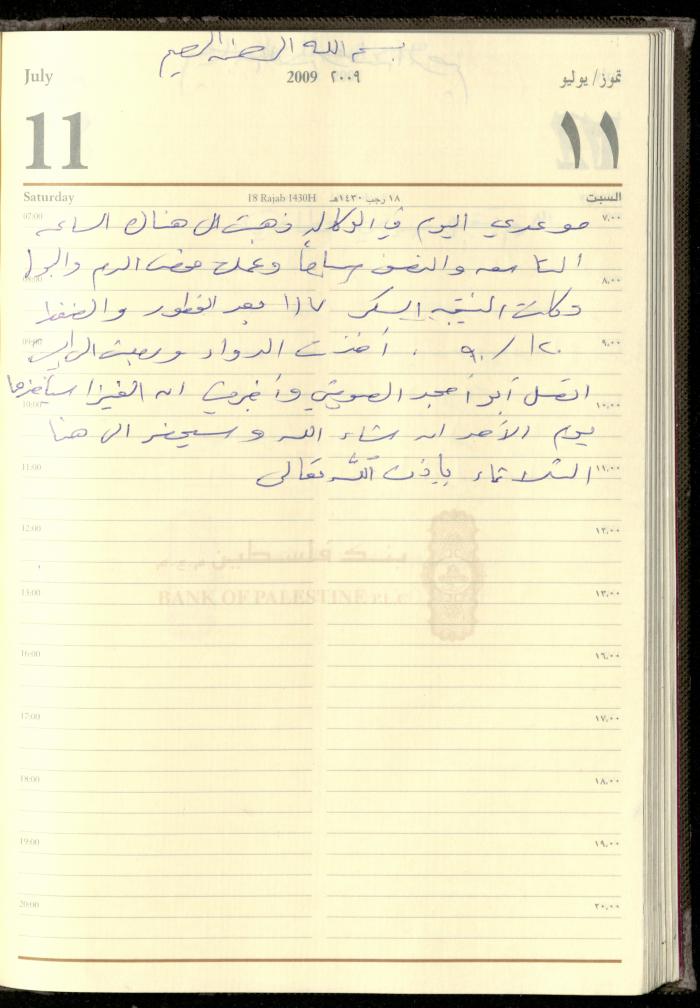 بسم الله الرحمن الرحيم
July 2009 ٢٠٠٩ تموز/ يوليو
11 ١١
Saturday 18 Rajab 1430H ١٨ رجب ١٤٣٠هـ السبت
موعدي اليوم في الوكالة ذهبت الى هناك الساعه
التاسعه والنصف صباحاً وعملت فحص الدم والبول
وكانت النتيجه السكر ١١٧ بعد الفطور والضغط
١٢٠/٩٠. أخذت الدواء ورجعت الى البيت
اتصل أبو أمجد وأخبرني ان الفيزا سيأخذها
يوم الأحد ان شاء الله وسيحضر الى هنا
الثلاثاء بإذن الله تعالى
07:00 ٧,٠٠
08:00 ٨,٠٠
09:00 ٩,٠٠
10:00 ١٠,٠٠
11:00 ١١,٠٠
12:00 ١٢,٠٠
13:00 ١٣,٠٠
16:00 ١٦,٠٠
17:00 ١٧,٠٠
18:00 ١٨,٠٠
19:00 ١٩,٠٠
20:00 ٢٠,٠٠
بنك فلسطين م.ع.م
BANK OF PALESTINE P.L.C